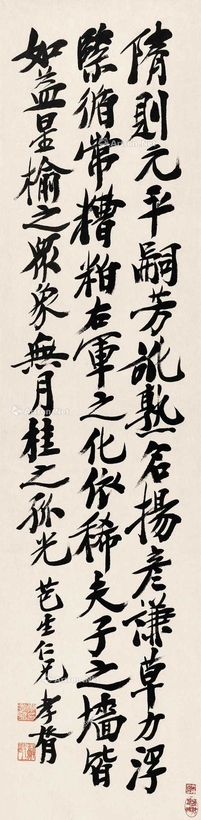 隋則元平嗣芳訛熟名揚彦謙草力浮
緊循常糟粕右軍之化依稀夫子之墻皆
如益星榆之眾象無月桂之孤光 芑生仁兄 孝胥